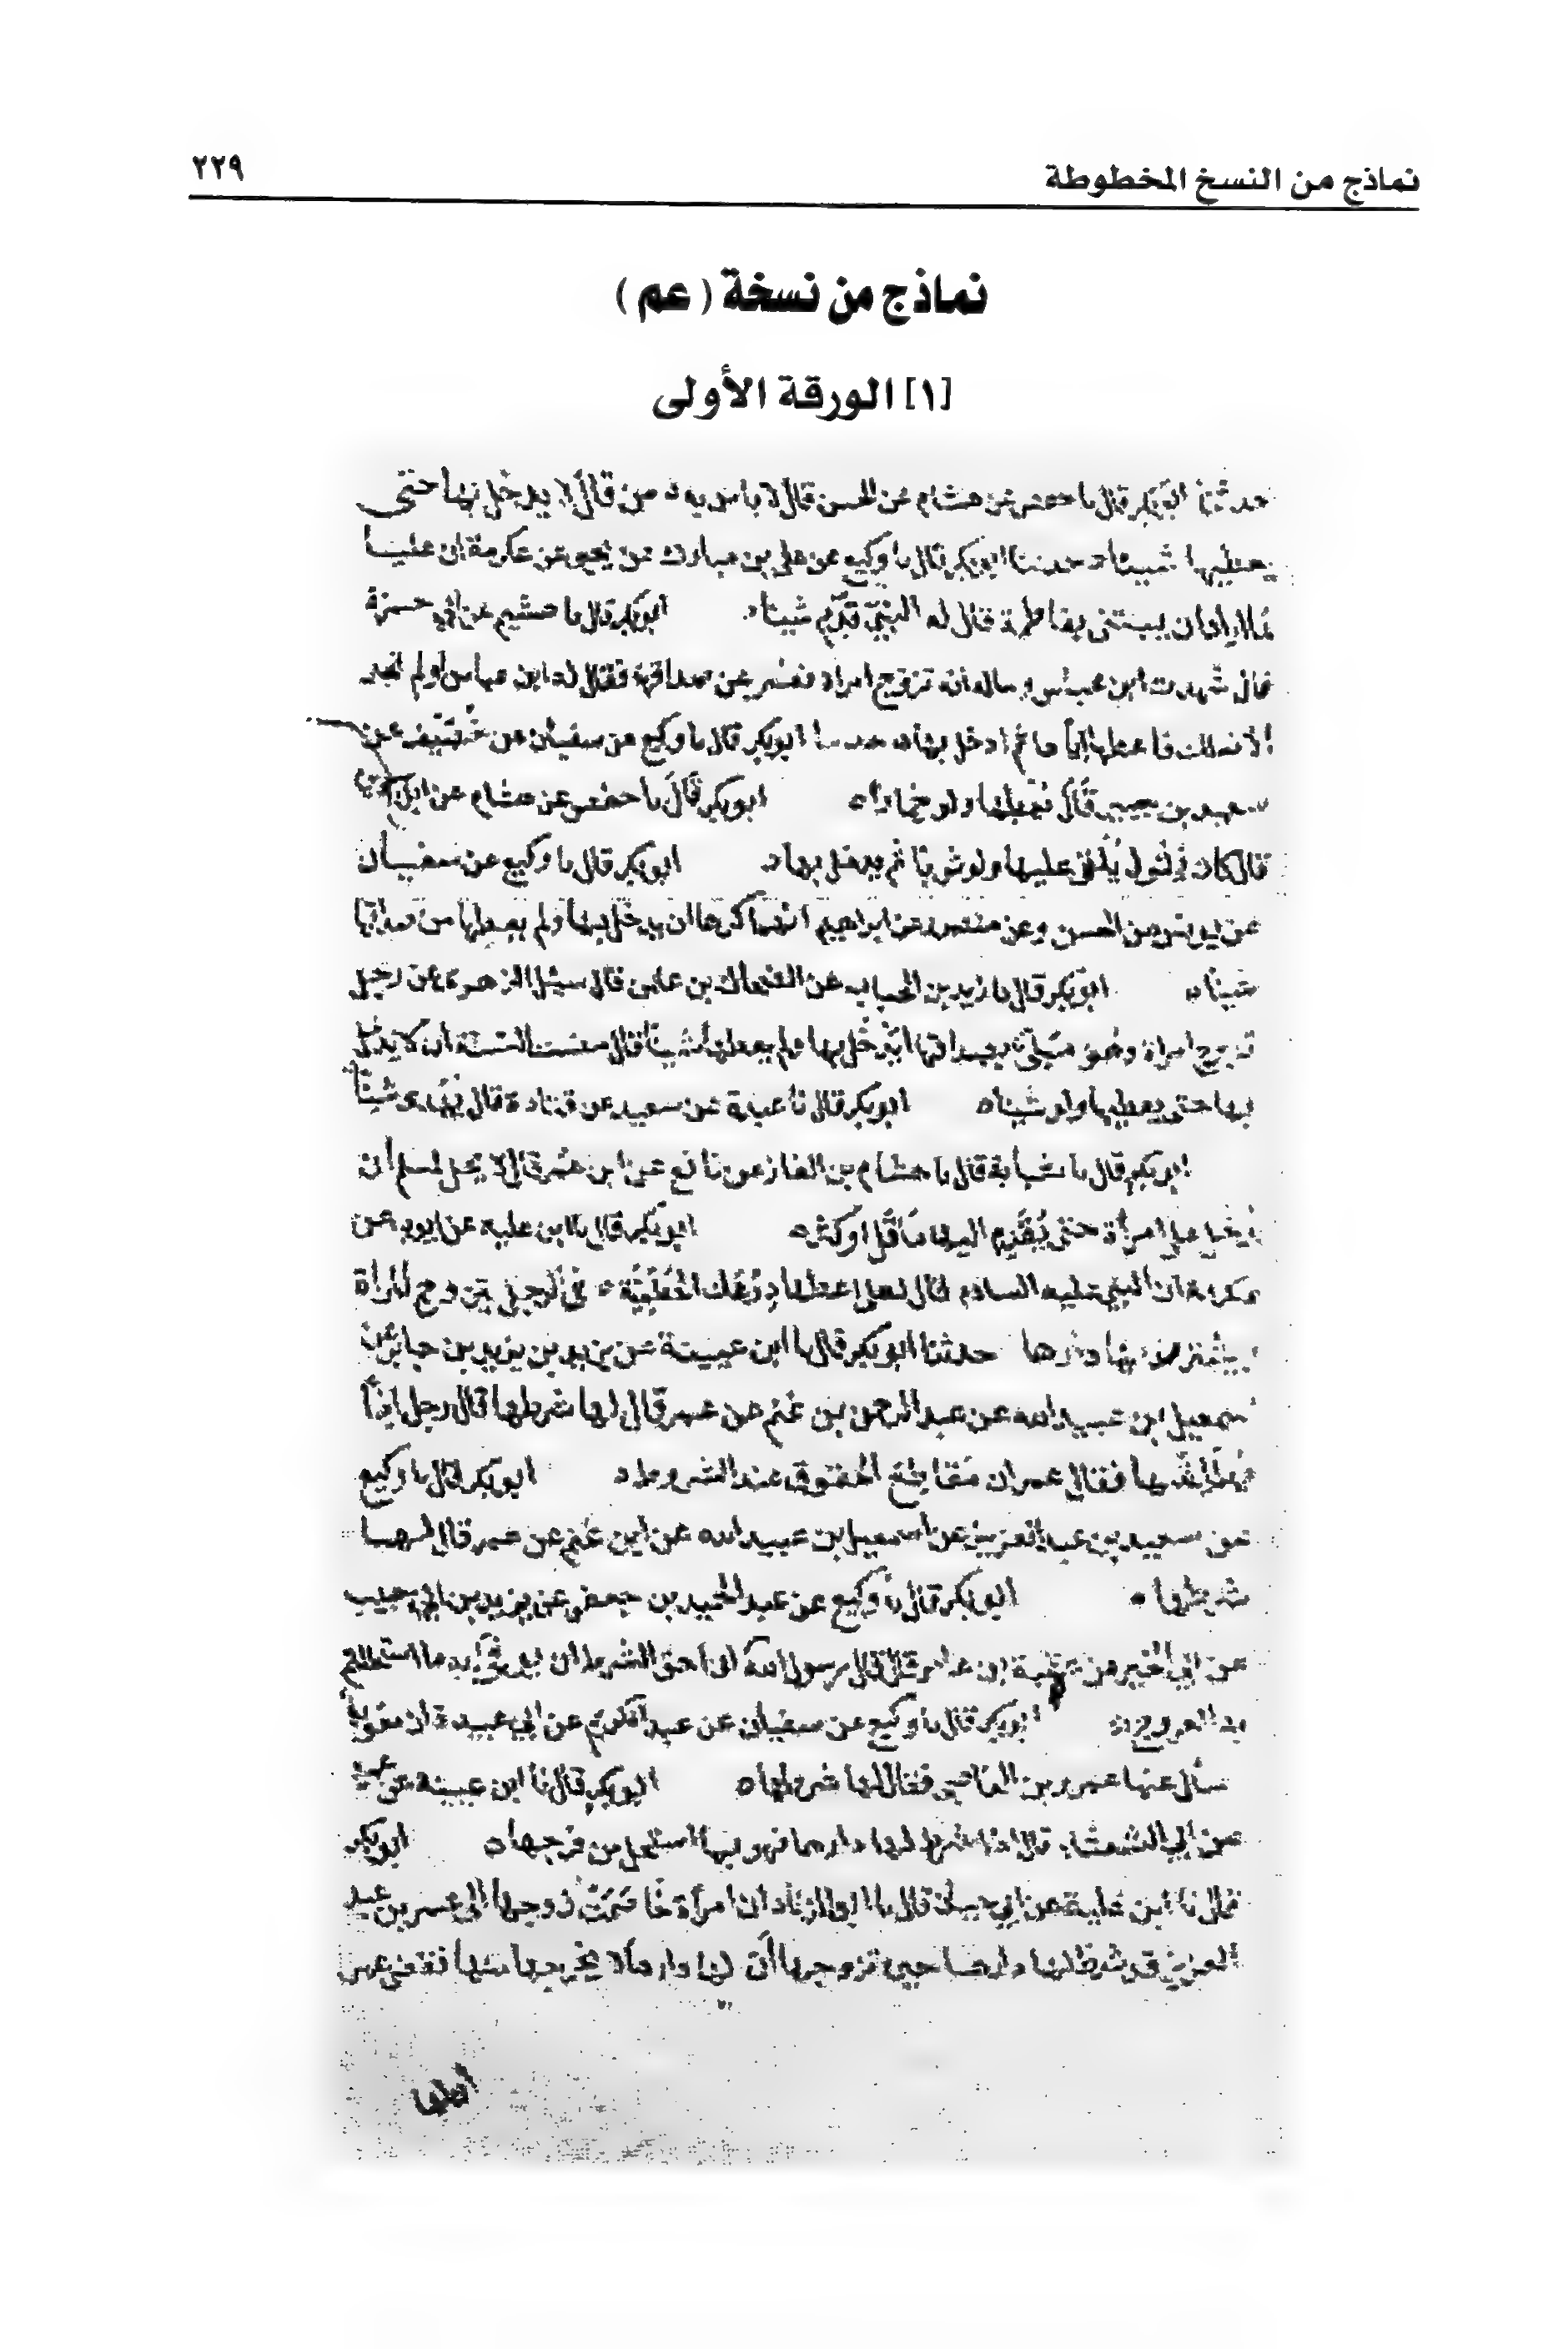 نماذج من النسخ المخطوطة ٢٢٩
نماذج من نسخة (عم)
[١] الورقة الأولى
حدثنا ابوبكر قال نا حفص عن هشام عن الحسن قال لا باس به ه من قال لا يدخل بها حتى
يعطيها شيئا ه حدثنا ابوبكر قال نا وكيع عن علي بن مبارك عن يحيى عن عكرمة ان عليا
لما اراد ان يبتنى بفاطمة فقال له النبي قدّم شيئا ه ابوبكر قال نا هشيم عن ابي حمزة
قال شهدت ابن عباس وساله انه تزوج امراة فعسر عن صداقها فقال له ابن عباس ولم تجد
الا نعلك فاعطها اياها ثم ادخل بها ه حدثنا ابوبكر قال نا وكيع عن سفيان عن خصيف عن
سعيد بن جبير قال يعطيها ولو خمارا ه ابوبكر قال نا حفص عن هشام عن ابن
قال كان يقول يلقى عليها ولو ثوبا ثم يدخل بها ه ابوبكر قال نا وكيع عن سفيان
عن يونس عن الحسن وعن منصور عن ابراهيم انهما كرها ان يدخل بها ولم يعطها من صداقها
شيئا ه ابوبكر قال نا زيد بن الحباب عن الضحاك بن عثمن قال سئل الزهري عن رجل
تزوج امراة وهو بصداقها ايدخل بها ولم يعطها شيئا قال مضت السنة ان لا يدخل
بها حتى يعطيها ولو شيئا ه ابوبكر قال نا عبدة عن سعيد عن قتادة قال يهدى شيئا
ابوبكر قال نا شبابة قال نا هشام بن الغاز عن نافع عن ابن عمر قال لا يحل لمسلم ان
يدخل على امرأة حتى يقدم اليها ما قل او كثر ه ابوبكر قال نا ابن علية عن ايوب عن
عكرمة ان النبي عليه السلام قال لعلي اعطها درعك الحطمية ه في الرجل يتزوج المرأة
يشترط لها دارها حدثنا ابوبكر قال نا ابن عيينة عن يزيد بن يزيد بن جابر عن
اسمعيل بن عبيد الله عن عبد الرحمن بن غنم عن عمر قال لها شرطها قال رجل اذاً
يطلقنها فقال عمر ان مقاطع الحقوق عند الشروط ه ابوبكر قال نا وكيع
عن سعيد بن عبد العزيز عن اسمعيل بن عبيد الله عن ابن غنم عن عمر قال لها
شرطها ه ابوبكر قال نا وكيع عن عبد الحميد بن جعفر عن يزيد بن ابي حبيب
عن ابي الخير عن عقبة بن عامر قال قال رسول الله ان احق الشرط ان يوفى به ما استحللتم
به الفروج ه ابوبكر قال نا وكيع عن سفيان عن عبد الكريم عن ابي عبيدة ان معوية
سأل عنها عمرو بن العاصي فقال لها شرطها ه ابوبكر قال نا ابن عيينة عن
عن ابي الشعثاء قال اذا شرط لها دارها فهو بما استحل من فرجها ه ابوبكر
قال نا ابن علية عن ابي قال نا ابو الزناد ان امرأة خاصمت زوجها الى عمر بن عبد
العزيز قد شرط لها دارها حين تزوجها ان لها دارها لا يخرجها منها فقضى عمر